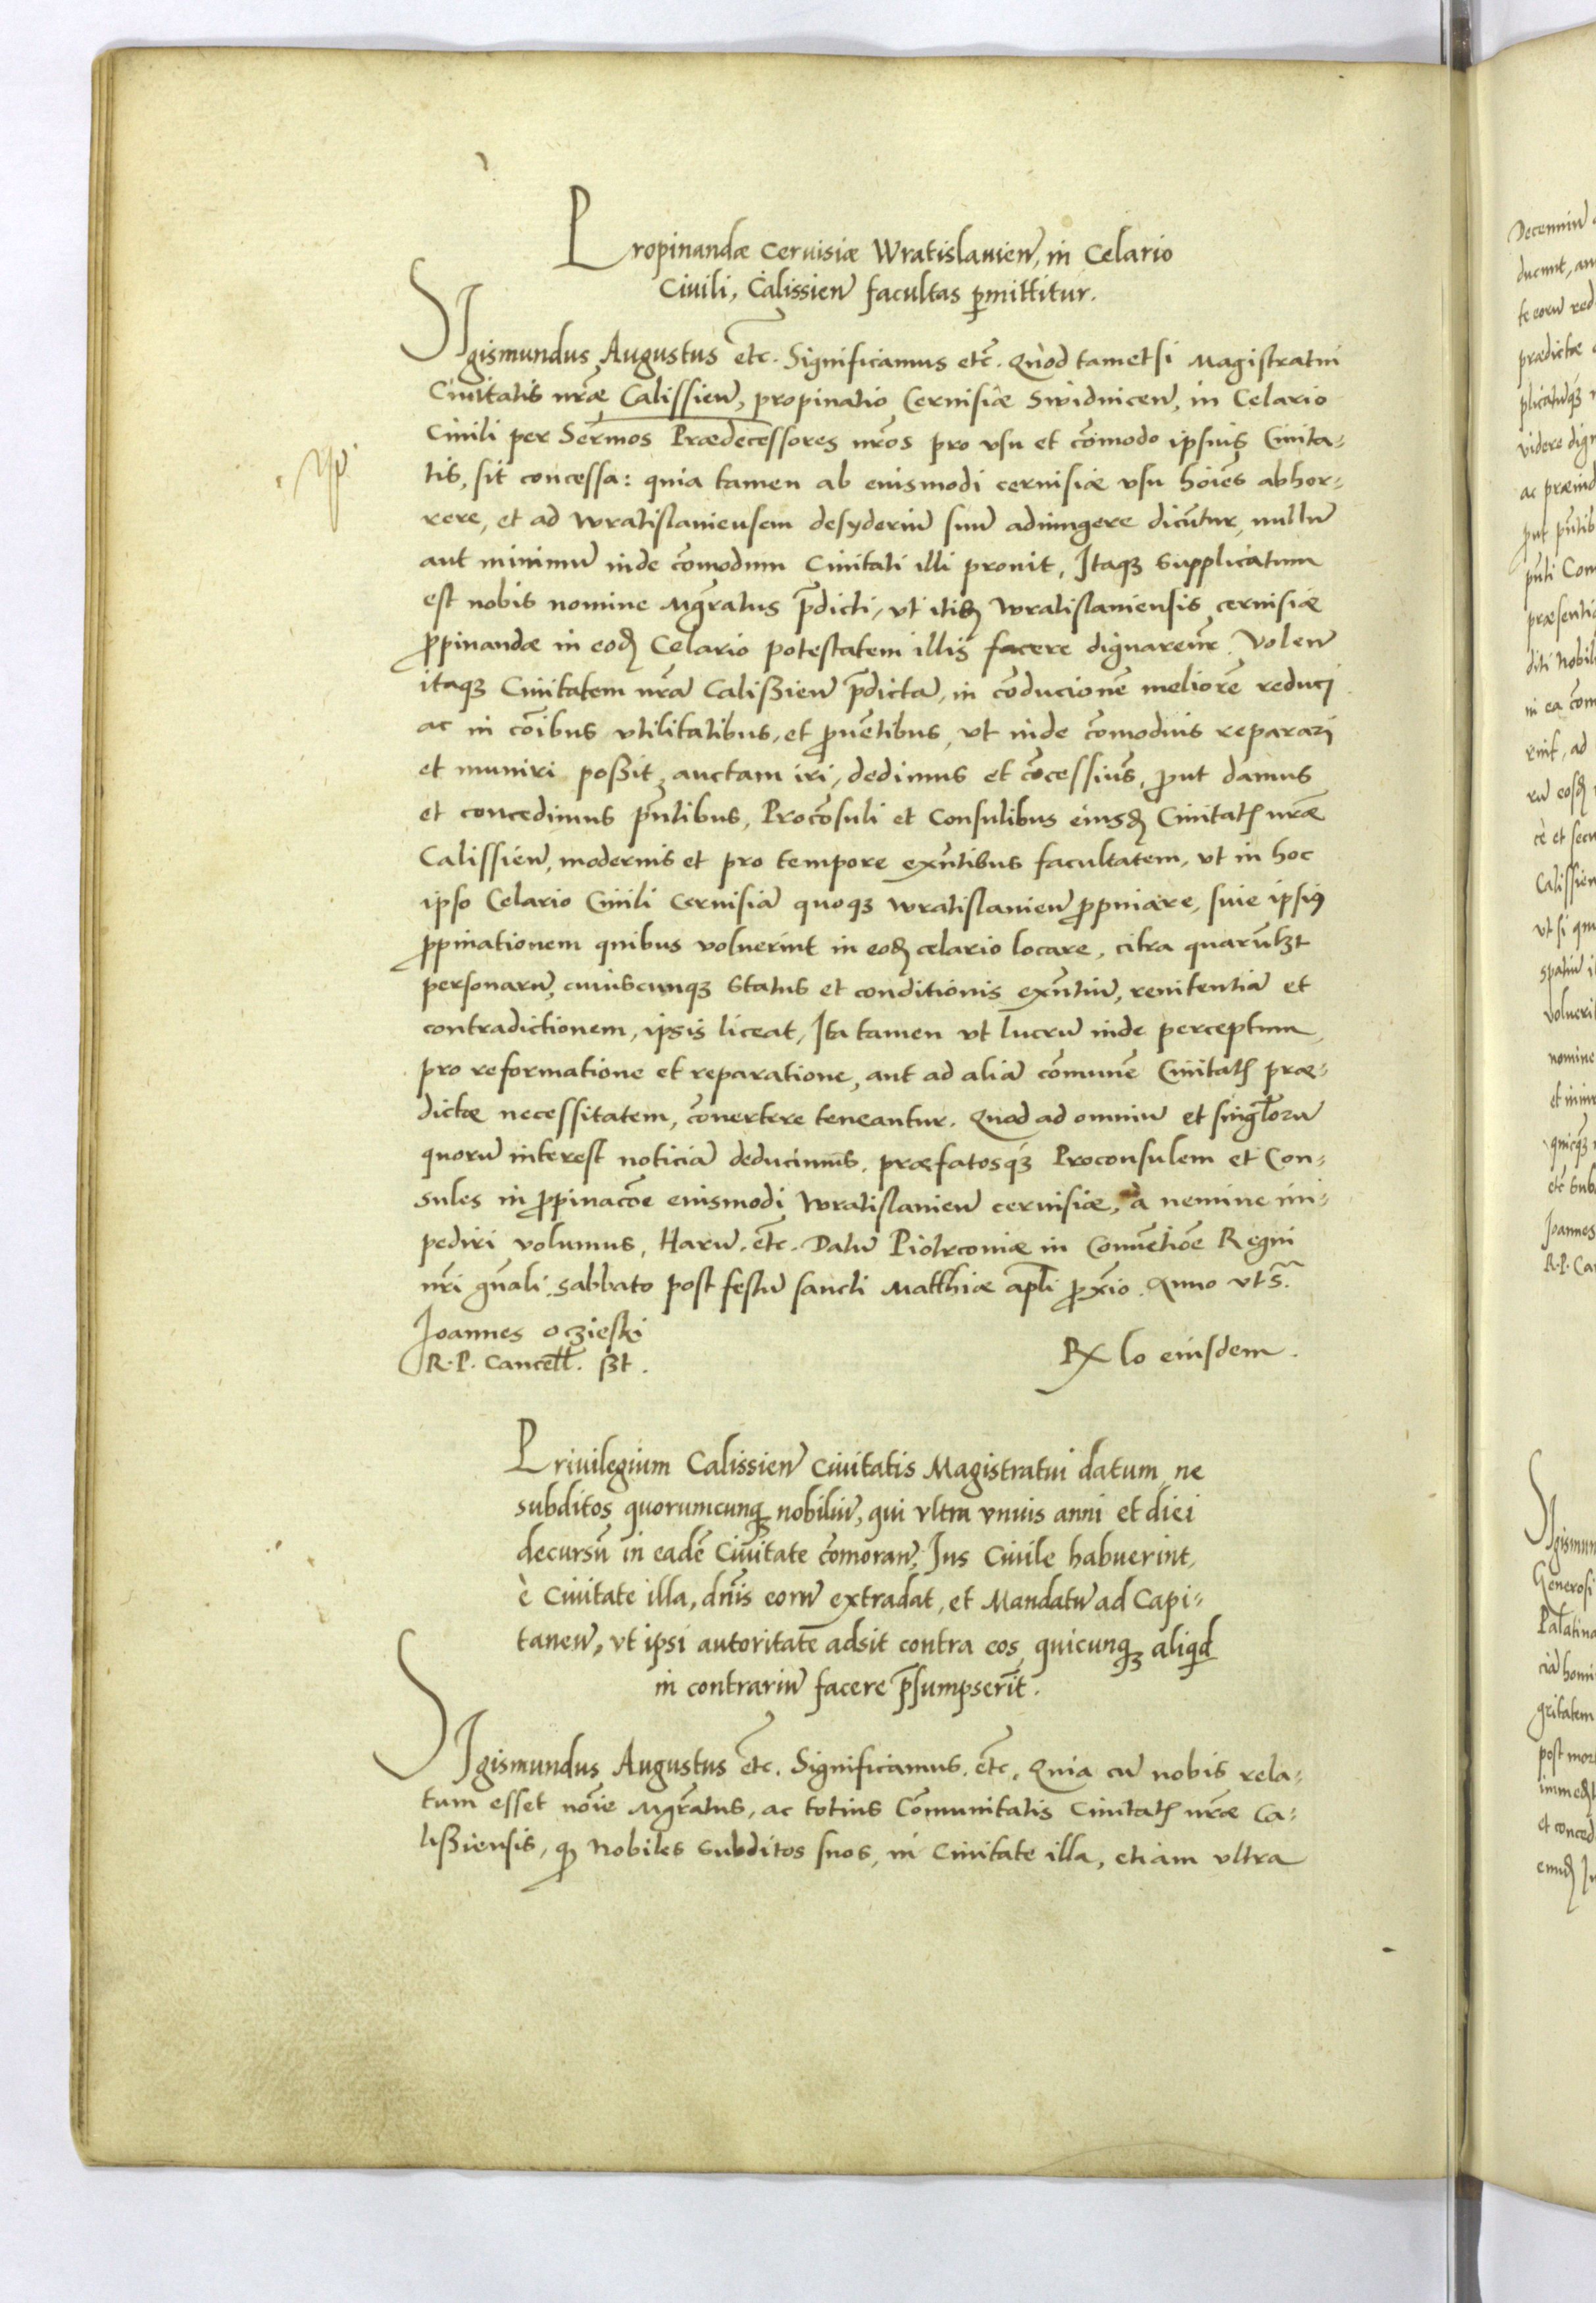 Propinandæ Ceruisiæ Wratislauien̄, in Celario
Ciuili, Calissien̄ facultas p̱mittitur.
SIgismundus Augustus etc̄. Significamus etc̄. Quòd tametsi Magistratui
Ciuitatis nr̄æ Calissien̄, propinatio Ceruisiæ Swidnicen̄, in Celario
Ciuili per Serm̄os Prædecessores nr̄os pro vsu et com̄odo ipsius Ciuita-
tis, sit concessa: quia tamen ab eiusmodi ceruisiæ vsu hoīes abhor-
rere, et ad Wratislauiensem desyderiū suū adiungere dicūtur, nullū
aut minimū inde com̄odum Ciuitati illi prouit, Itaqꝫ supplicatum
est nobis nomine Mgr̄atus p̄dicti, vt itid̄ Wratislauiensis ceruisiæ
ꝓpinandæ in eod̄ Celario potestatem illis facere dignarem̄r. Volen̄
itaqꝫ Ciuitatem nr̄ā Calißien̄ p̄dictā, in cōdicionē meliorē reduci
ac in cōibus vtilitatibus, et ꝓuētibus, vt inde com̄odius reparari
et muniri poßit, auctam iri, dedimus et cōcessim̄s, ꝓut damus
et concedimus pn̄tibus, Procōsuli et Consulibus eiusd̄ Ciuitatꝭ nr̄æ
Calissien̄, modernis et pro tempore exn̄tibus facultatem, vt in hoc
ipso Celario Ciuili Ceruisiā quoqꝫ Wratislauien̄ ꝓpinare, siue ipsiꝰ
ꝓpinationem quibus voluerint in eod̄ celario locare, citra quarūlꝫt
personarū, cuiuscunqꝫ status et conditionis exn̄tiū, renitentiā et
contradictionem, ipsis liceat, Ita tamen vt lucrū inde perceptum
pro reformatione et reparatione, aut ad aliā com̄unē Ciuitatꝭ præ-
dictæ necessitatem, cōuertere teneantur. Quod ad omniū et singl̄orū
quorū interest noticiā deducimus, præfatosqꝫ Proconsulem et Con-
sules in ꝓpinacōe eiusmodi Wratislauien̄ ceruisiæ, à nemine im-
pediri volumus, Harū. etc̄. Datū Piotrcouiæ in Conuētiōe Regni
nr̄i gn̄ali, sabbato post festū sancti Matthiæ apl̄i ꝓxīo. Anno vt sᵃ.
Joannes Oczieski
R. P. Cancell̄. ßt.
Rx̄ lo eiusdem.
Priuilegium Calissien̄ Ciuitatis Magistratui datum, ne
subditos quorumcunqꝫ nobiliū, qui vltra vnius anni et diei
decursū in eadē Ciuitate com̄oran̄, Ius Ciuile habuerint,
è Ciuitate illa, dn̄is eorū extradat, et Mandatū ad Capi-
taneū, vt ipsi autoritate adsit contra eos, quicunqꝫ aliqd̄
in contrariū facere p̄sumpserīt.
SIgismundus Augustus etc̄. Significamus. etc̄. Quia cū nobis rela-
tum esset nōie Mgr̄atus, ac totius Com̄unitatis Ciuitatꝭ nr̄æ Ca-
lißiensis, ꝙ Nobiles subditos suos, in Ciuitate illa, etiam vltra